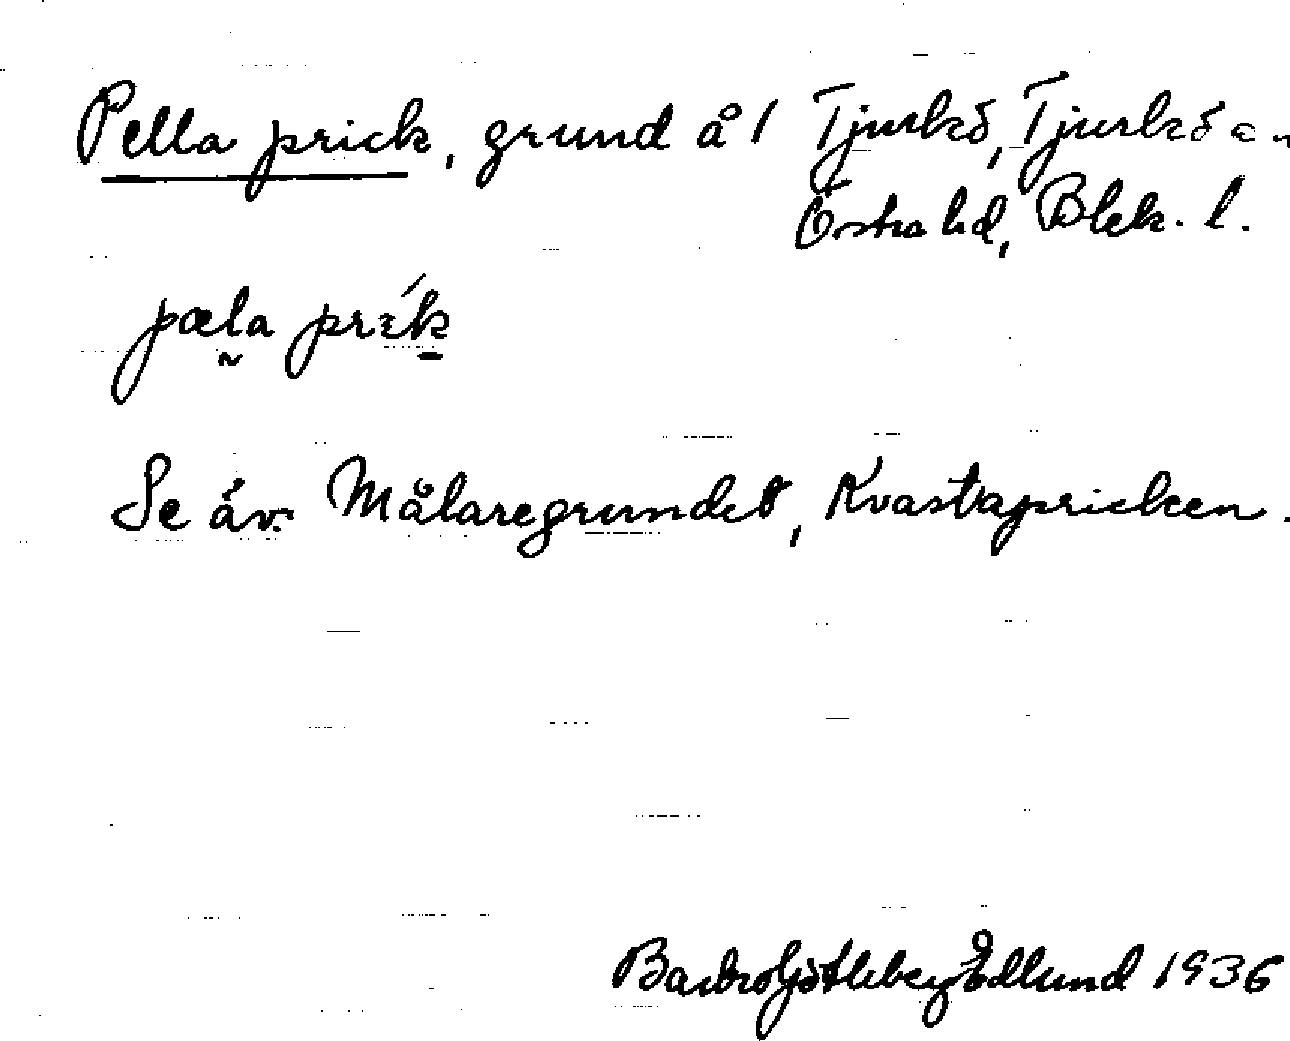 Pella prick, grund å 1 Tjurkö, Tjurkö sn
Östra hd, Blek. l.
pæla prik
Se äv. Målaregrundet, Kvastapricken.
Edlund 1936